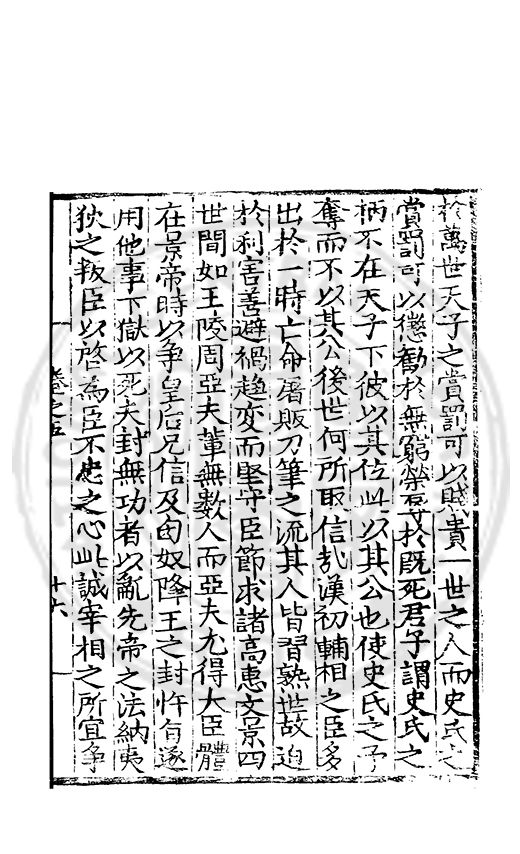 於萬世天子之賞罰可以賤貴一世之人而史氏之
賞罰可以懲勸於無窮榮辱於既死君子謂史氏之
柄不在天子下彼以其位此以其公也使史氏之予
奪而不以其公後世何所取信哉漢初輔相之臣多
出於一時亡命屠販刀筆之流其人皆習熟世故迫
於利害善避禍趨変而堅守臣節求諸高惠文景四
世間如王陵周亞夫軰無數人而亞夫尤得大臣體
在景帝時以争皇后兄信及匈奴降王之封忤旨遂
用他事下獄以死夫封無功者以亂先帝之法納夷
狄之叛臣以啓為臣不忠之心此誠宰相之所宜争
卷之五
十六